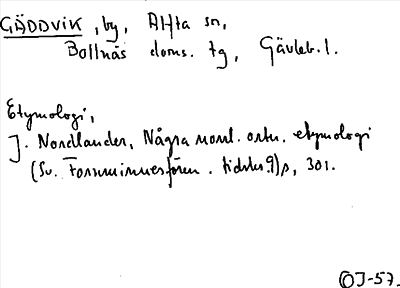 GÄDDVIK, by, Alfta sn,
Bollnäs doms. tg, Gävleb. l.
Etymologi,
J. Nordlander, Några norrl. ortn. etymologi
(Sv. Fornminnesfören. tidskr. 9) s, 301.
OJ-57.